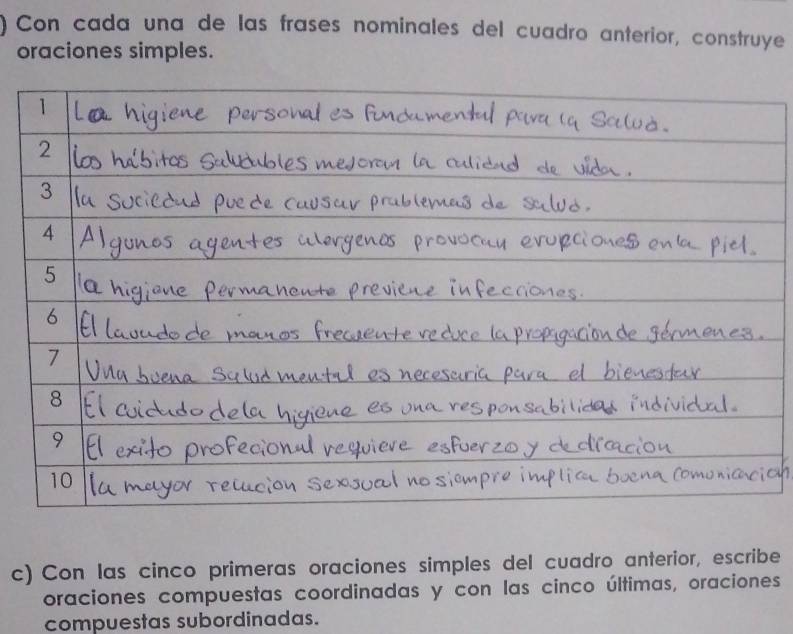 ) Con cada una de las frases nominales del cuadro anterior, construye
oraciones simples.
1 La higiene personal es fundamental para la Salud.
2 los hábitos Saludables mejoran la calidad de vida.
3 la suciedad puede causar problemas de salud.
4 Algunos agentes alergenos provocan erupciones en la piel.
5 la higiene permanente previene infecciones.
6 El lavado de manos frecuente reduce la propagacion de gérmenes.
7 Una buena salud mental es necesaria para el bienestar
8 El cuidado de la higiene es una responsabilidad individual.
9 El exito profecional requiere esfuerzo y dedicacion
10 la mayor relacion sexsual no siempre implica buena comunicacion
c) Con las cinco primeras oraciones simples del cuadro anterior, escribe
oraciones compuestas coordinadas y con las cinco últimas, oraciones
compuestas subordinadas.